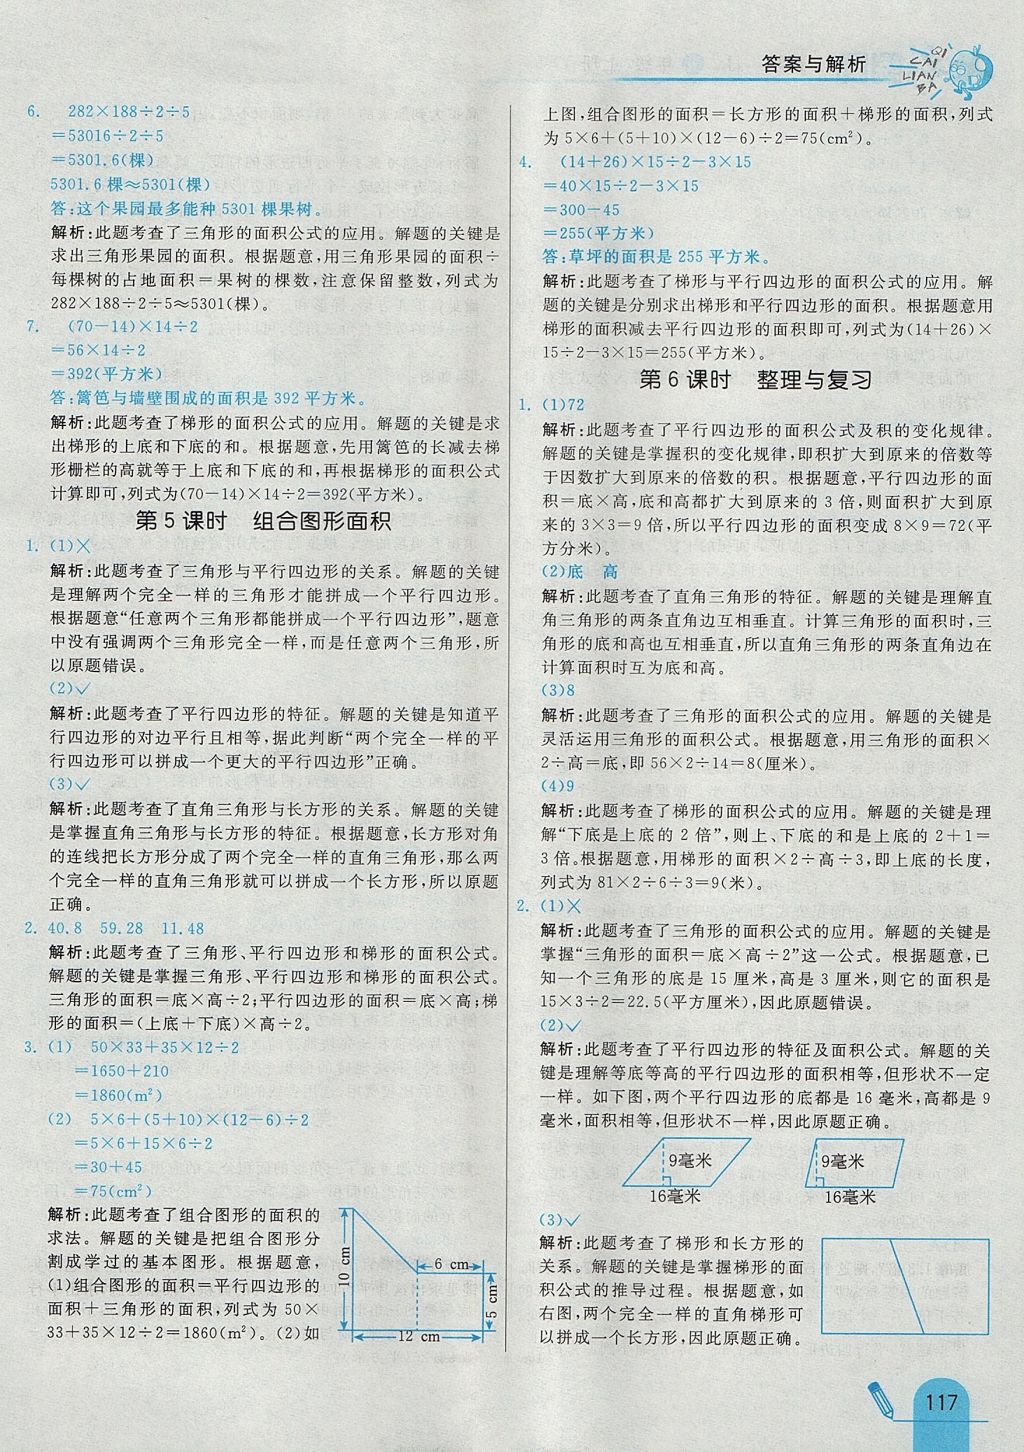 答案与解析
QI
CAI
LIAN
BA
6. 282×188÷2÷5
=53016÷2÷5
=5301.6(棵)
5301.6棵≈5301(棵)
答:这个果园最多能种5301棵果树。
解析:此题考查了三角形的面积公式的应用。解题的关键是
求出三角形果园的面积。根据题意,用三角形果园的面积÷
每棵树的占地面积=果树的棵数,注意保留整数,列式为
282×188÷2÷5≈5301(棵)。
7. (70-14)×14÷2
=56×14÷2
=392(平方米)
答:篱笆与墙壁围成的面积是392平方米。
解析:此题考查了梯形的面积公式的应用。解题的关键是求
出梯形的上底和下底的和。根据题意,先用篱笆的长减去梯
形栅栏的高就等于上底和下底的和,再根据梯形的面积公式
计算即可,列式为(70-14)×14÷2=392(平方米)。
第5课时 组合图形面积
1. (1)×
解析:此题考查了三角形与平行四边形的关系。解题的关键
是理解两个完全一样的三角形才能拼成一个平行四边形。
根据题意“任意两个三角形都能拼成一个平行四边形”,题意
中没有强调两个三角形完全一样,而是任意两个三角形,所
以原题错误。
(2)✓
解析:此题考查了平行四边形的特征。解题的关键是知道平
行四边形的对边平行且相等,据此判断“两个完全一样的平
行四边形可以拼成一个更大的平行四边形”正确。
(3)✓
解析:此题考查了直角三角形与长方形的关系。解题的关键
是掌握直角三角形与长方形的特征。根据题意,长方形对角
的连线把长方形分成了两个完全一样的直角三角形,那么两
个完全一样的直角三角形就可以拼成一个长方形,所以原题
正确。
2. 40.8 59.28 11.48
解析:此题考查了三角形、平行四边形和梯形的面积公式。
解题的关键是掌握三角形、平行四边形和梯形的面积公式。
三角形的面积=底×高÷2;平行四边形的面积=底×高;梯
形的面积=(上底+下底)×高÷2。
3. (1) 50×33+35×12÷2
=1650+210
=1860(m²)
(2) 5×6+(5+10)×(12-6)÷2
=5×6+15×6÷2
=30+45
=75(cm²)
解析:此题考查了组合图形的面积的
求法。解题的关键是把组合图形分
割成学过的基本图形。根据题意,
(1)组合图形的面积=平行四边形的
面积+三角形的面积,列式为50×
33+35×12÷2=1860(m²)。(2)如
10 cm
6 cm
5 cm
12 cm
上图,组合图形的面积=长方形的面积+梯形的面积,列式
为5×6+(5+10)×(12-6)÷2=75(cm²)。
4. (14+26)×15÷2-3×15
=40×15÷2-3×15
=300-45
=255(平方米)
答:草坪的面积是255平方米。
解析:此题考查了梯形与平行四边形的面积公式的应用。解
题的关键是分别求出梯形和平行四边形的面积。根据题意用
梯形的面积减去平行四边形的面积即可,列式为(14+26)×
15÷2-3×15=255(平方米)。
第6课时 整理与复习
1. (1)72
解析:此题考查了平行四边形的面积公式及积的变化规律。
解题的关键是掌握积的变化规律,即积扩大到原来的倍数等
于因数扩大到原来的倍数的积。根据题意,平行四边形的面
积=底×高,底和高都扩大到原来的3倍,则面积扩大到原
来的3×3=9倍,所以平行四边形的面积变成8×9=72(平
方分米)。
(2)底 高
解析:此题考查了直角三角形的特征。解题的关键是理解直
角三角形的两条直角边互相垂直。计算三角形的面积时,三
角形的底和高也互相垂直,所以直角三角形的两条直角边在
计算面积时互为底和高。
(3)8
解析:此题考查了三角形的面积公式的应用。解题的关键是
灵活运用三角形的面积公式。根据题意,用三角形的面积×
2÷高=底,即56×2÷14=8(厘米)。
(4)9
解析:此题考查了梯形的面积公式的应用。解题的关键是理
解“下底是上底的2倍”,则上、下底的和是上底的2+1=
3倍。根据题意,用梯形的面积×2÷高÷3,即上底的长度,
列式为81×2÷6÷3=9(米)。
2. (1)×
解析:此题考查了三角形的面积公式的应用。解题的关键是
掌握“三角形的面积=底×高÷2”这一公式。根据题意,已
知一个三角形的底是15厘米,高是3厘米,则它的面积是
15×3÷2=22.5(平方厘米),因此原题错误。
(2)✓
解析:此题考查了平行四边形的特征及面积公式。解题的关
键是理解等底等高的平行四边形的面积相等,但形状不一定
一样。如下图,两个平行四边形的底都是16毫米,高都是9
毫米,面积相等,但形状不一样,因此原题正确。
9毫米
16毫米
9毫米
16毫米
(3)✓
解析:此题考查了梯形和长方形的
关系。解题的关键是掌握梯形的面
积公式的推导过程。根据题意,如
右图,两个完全一样的直角梯形可
以拼成一个长方形,因此原题正确。
117